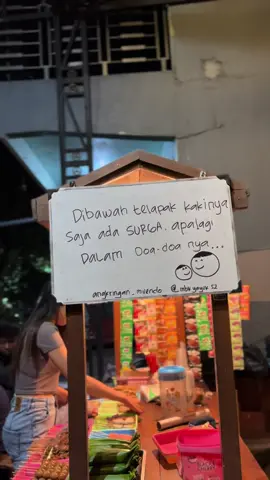 Dibawah telapak kakinya
Saja ada SURGA. apalagi
DALAM DOA-DOA nya...
angkringan . nvendo @mbv yoyov 52